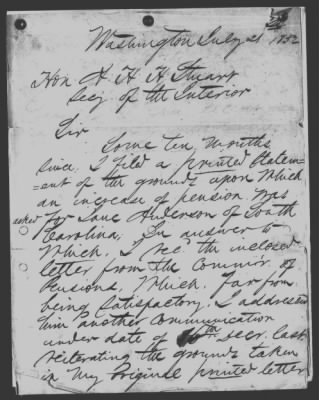 Washington July 21 1852
Hon A H H Stuart
Secy of the Interior
Sir
Some ten months
since, I filed a printed Statem-
=ent of the grounds upon which
an increase of pension was
asked for Jane Anderson of South
Carolina, In answer to
which, I recd the inclosed
letter from the Commr. of
Pensions, which, far from
being satisfactory, I addressed
him another communication
under date of 10th Decr. last
reiterating the grounds taken
in my original printed letter